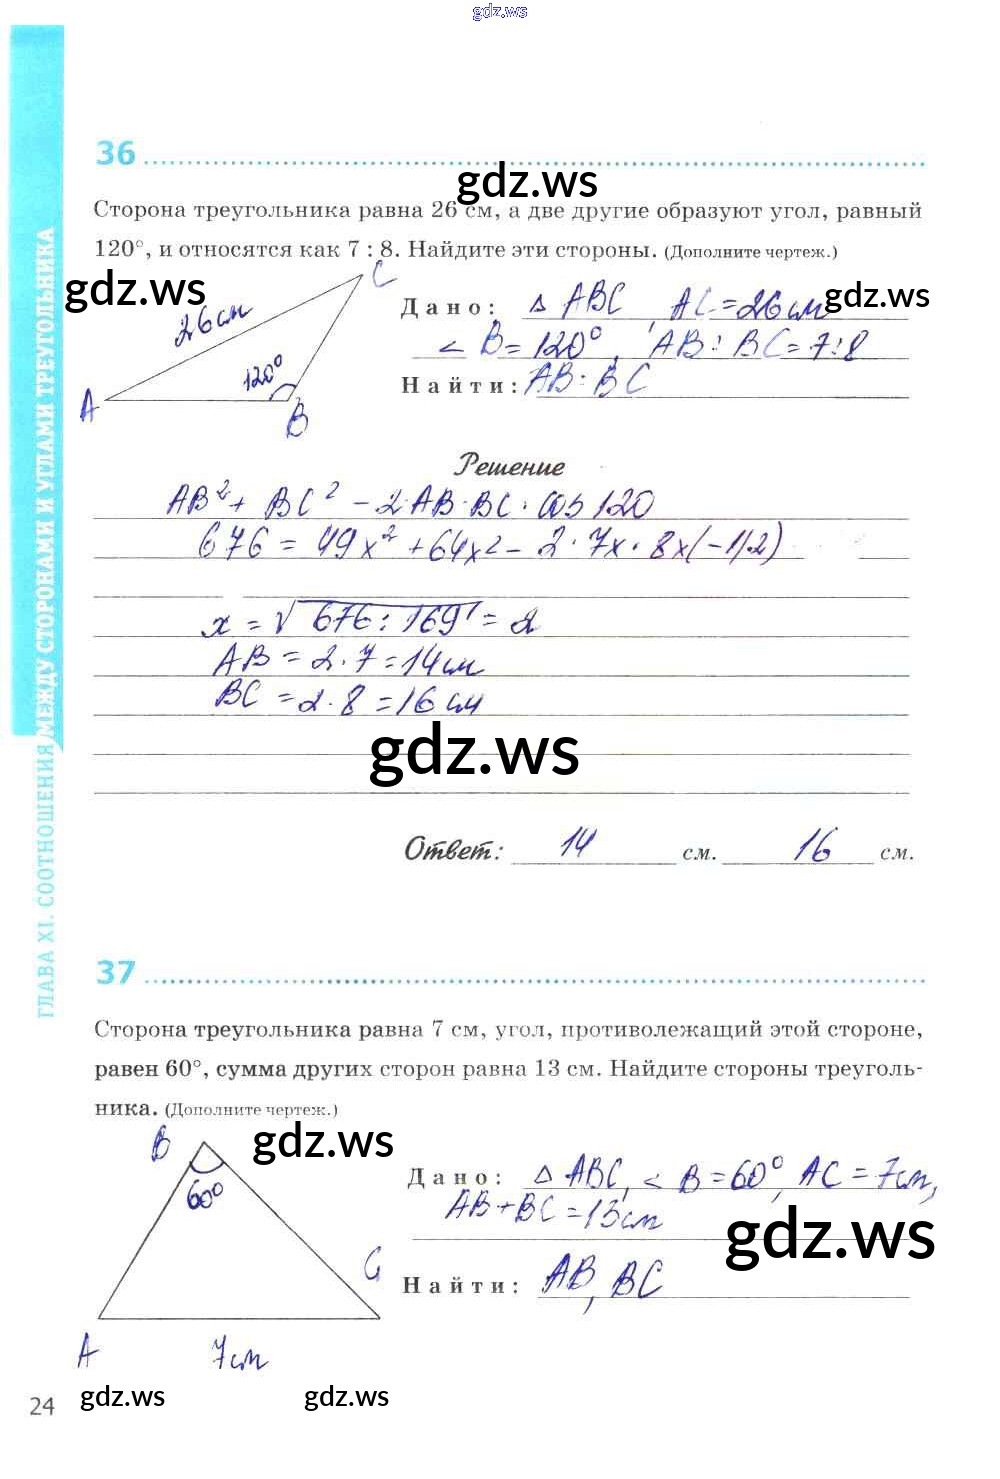 gdz.ws
36
gdz.ws
Сторона треугольника равна 26 см, а две другие образуют угол, равный
120°, и относятся как 7 : 8. Найдите эти стороны. (Дополните чертеж.)
gdz.ws
C
26 см
120°
A
B
Дано: Δ ABC, AC = 26 см
gdz.ws
< B = 120°, AB : BC = 7:8
Найти: AB : BC
Решение
AB² + BC² - 2·AB·BC·cos 120
676 = 49x² + 64x² - 2·7x·8x(-1/2)
x = √676:169 = 2
AB = 2·7 = 14 см
BC = 2·8 = 16 см
gdz.ws
Ответ: 14 см. 16 см.
37
Сторона треугольника равна 7 см, угол, противолежащий этой стороне,
равен 60°, сумма других сторон равна 13 см. Найдите стороны треуголь-
ника. (Дополните чертеж.)
gdz.ws
B
60°
C
A
7 см
Дано: Δ ABC, < B = 60°, AC = 7 см,
AB + BC = 13 см
gdz.ws
Найти: AB, BC
gdz.ws
gdz.ws
24
ГЛАВА XI. СООТНОШЕНИЯ МЕЖДУ СТОРОНАМИ И УГЛАМИ ТРЕУГОЛЬНИКА